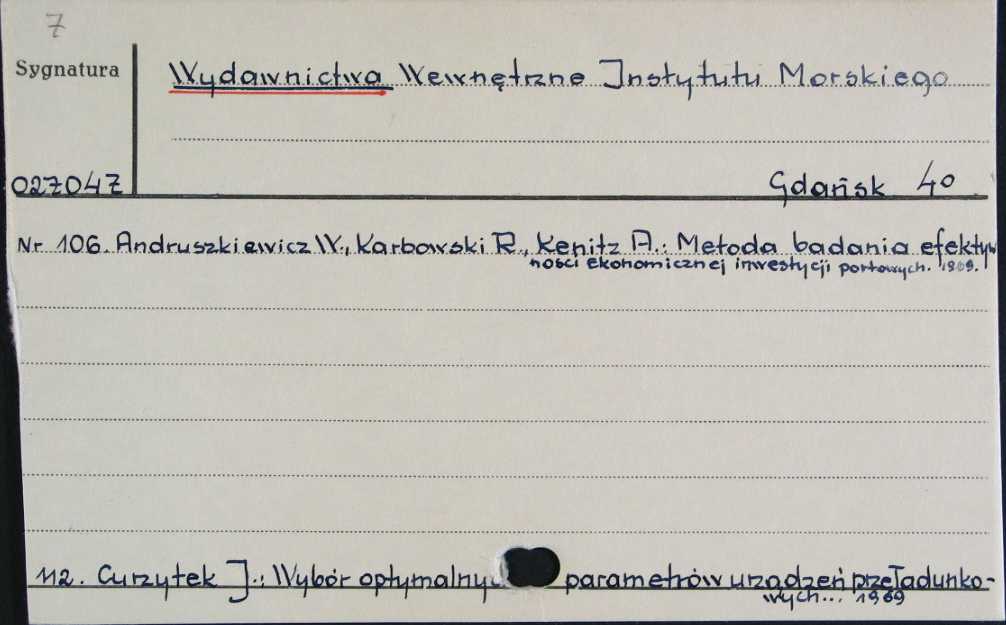 7
Sygnatura
Wydawnictwa Wewnętrzne Instytutu Morskiego
027047
Gdańsk 40
Nr 106. Andruszkiewicz W., Karbowski R., Kenitz A.: Metoda badania efektyw
ności ekonomicznej inwestycji portowych. 1969.
112. Curzytek J.: Wybór optymalnyc parametrów urządzeń przeładunko-
wych... 1969